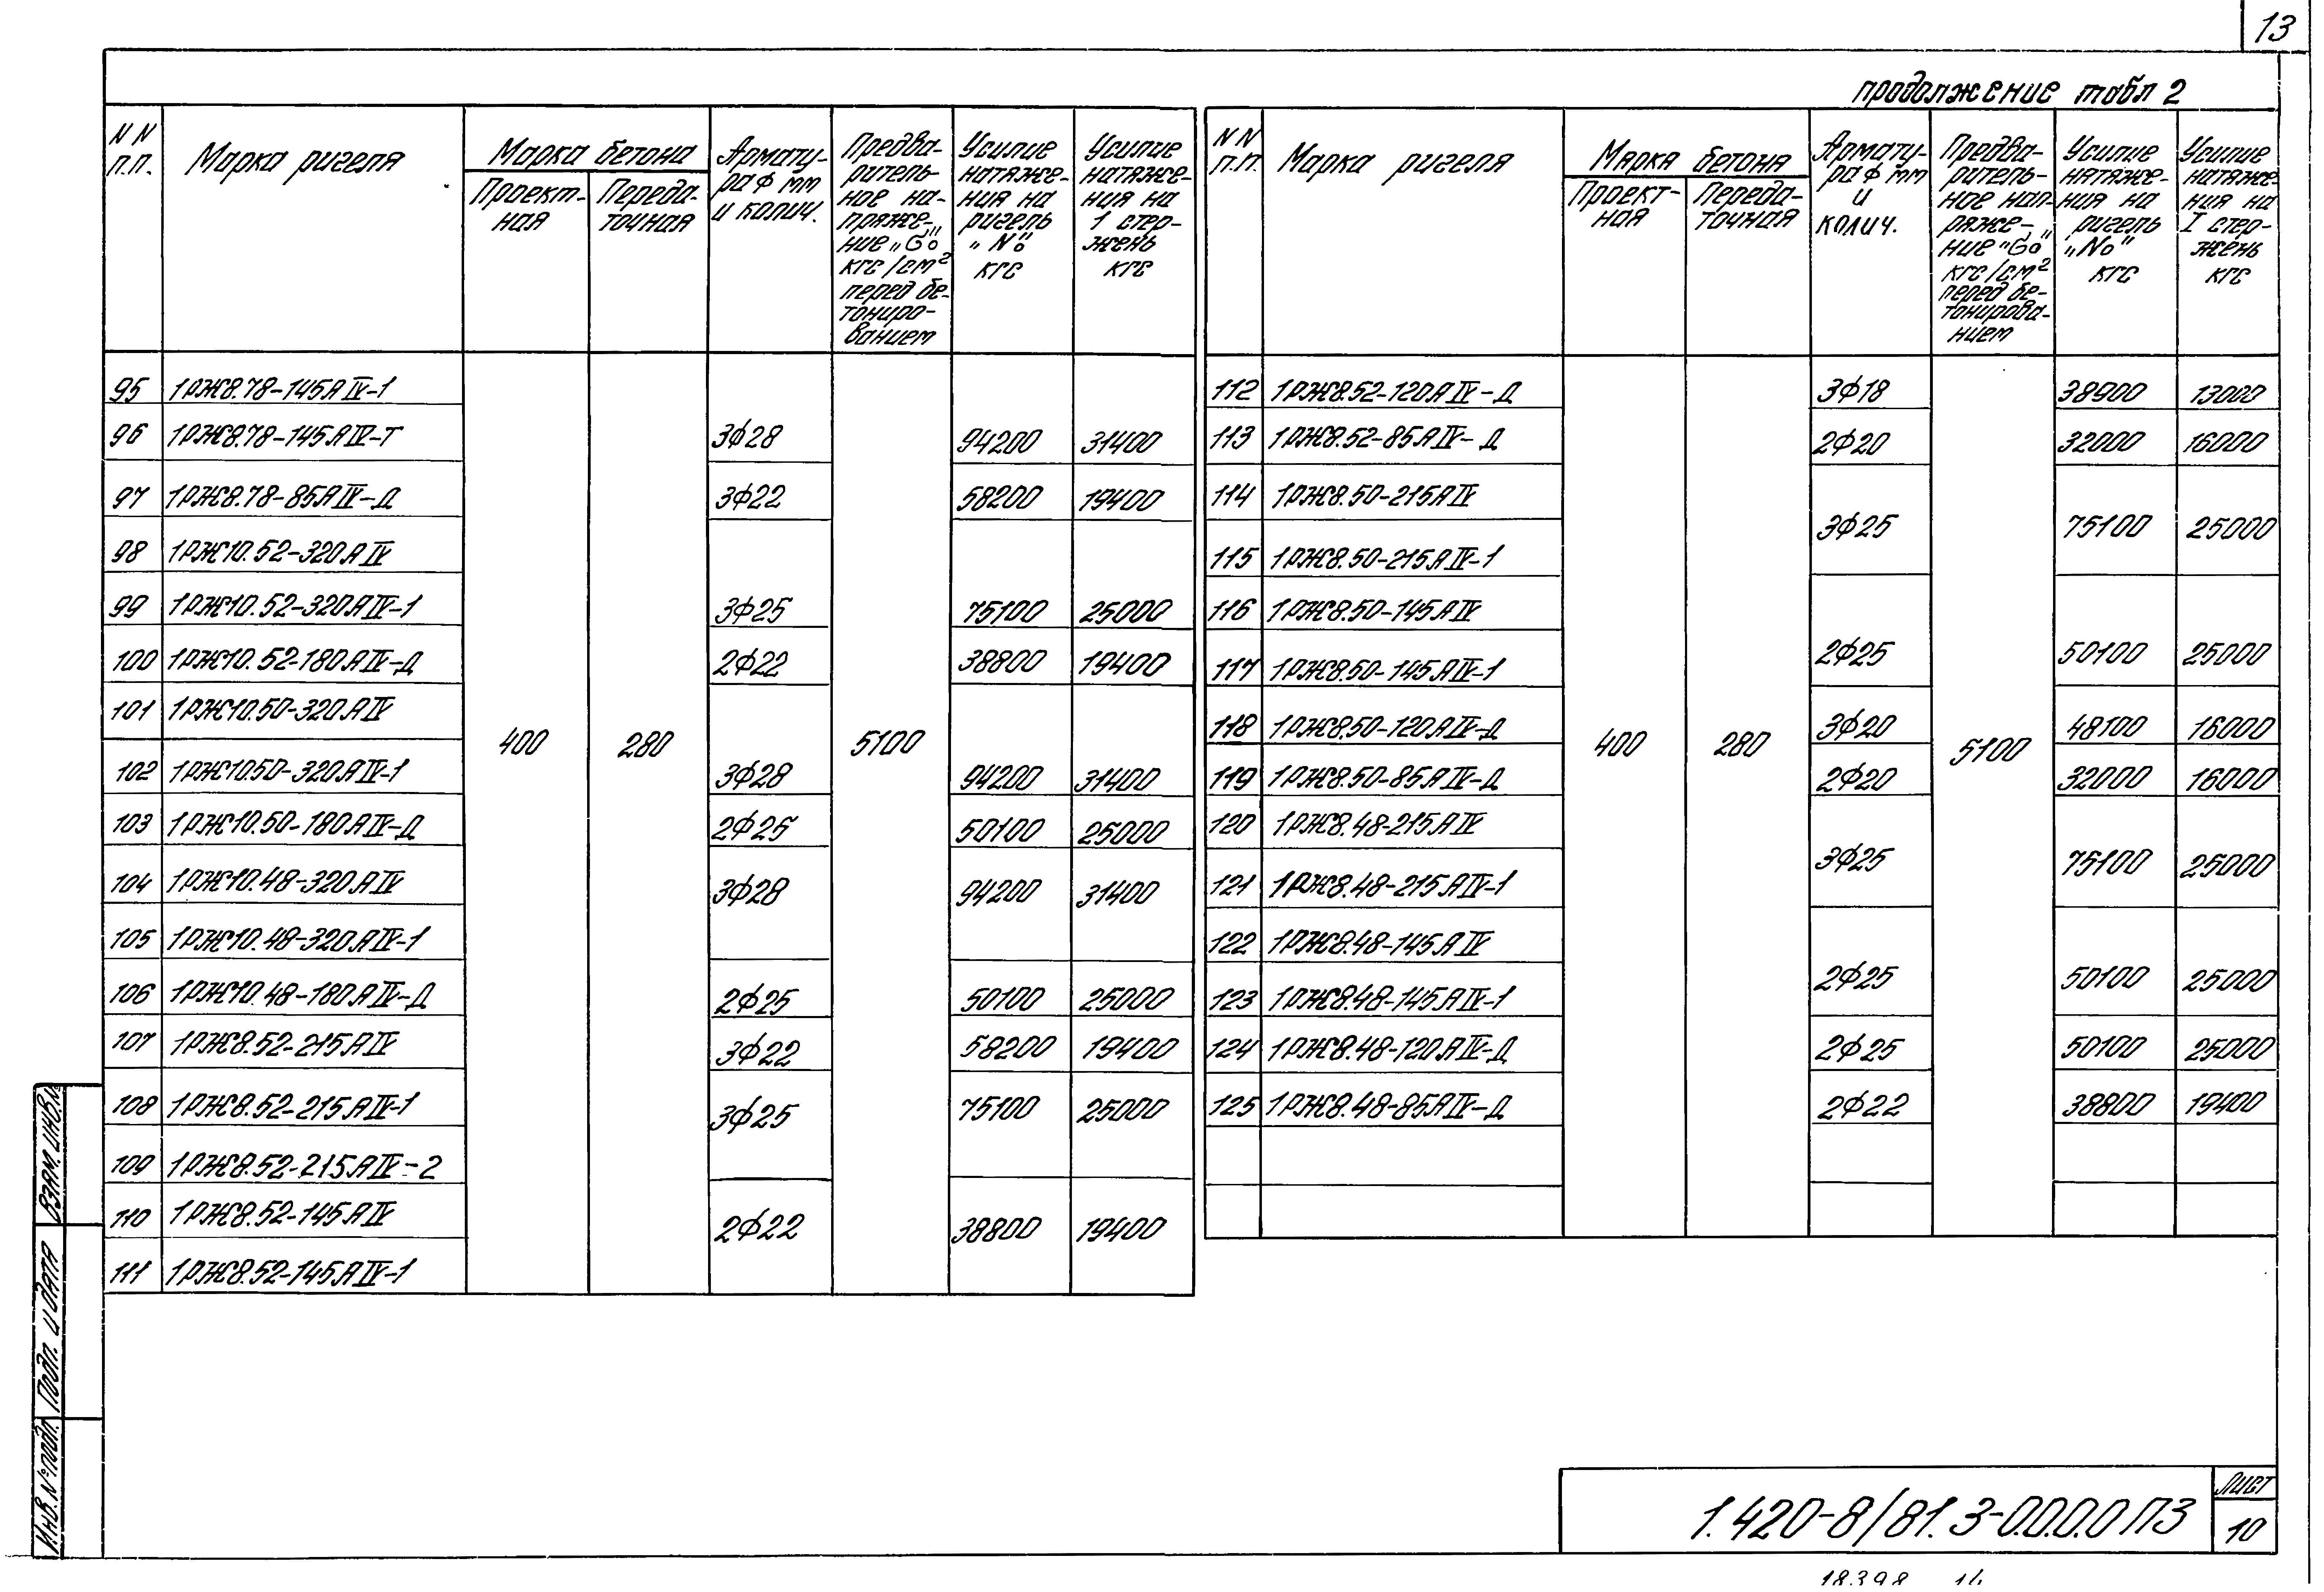 13
продолжение табл 2
NN п.п. Марка ригеля Марка бетона Проект-ная Переда-точная Армату-ра Ф мм и колич. Предва-ритель-ное на-пряже-ние „Gо" кгс/см² перед бе-тониро-ванием Усилие натяже-ния на ригель „Nо" кгс Усилие натяже-ния на 1 стер-жень кгс
95 1РЖ8.78-145АIV-1
96 1РЖ8.78-145АIV-Т 3Ф28 94200 31400
97 1РЖ8.78-85АIV-Д 3Ф22 58200 19400
98 1РЖ10.52-320АIV
99 1РЖ10.52-320АIV-1 3Ф25 75100 25000
100 1РЖ10.52-180АIV-Д 2Ф22 38800 19400
101 1РЖ10.50-320АIV
400 280 5100
102 1РЖ1050-320АIV-1 3Ф28 94200 31400
103 1РЖ10.50-180АIV-Д 2Ф25 50100 25000
104 1РЖ10.48-320АIV 3Ф28 94200 31400
105 1РЖ10.48-320АIV-1
106 1РЖ10.48-180АIV-Д 2Ф25 50100 25000
107 1РЖ8.52-215АIV 3Ф22 58200 19400
108 1РЖ8.52-215АIV-1 3Ф25 75100 25000
109 1РЖ8.52-215АIV-2
110 1РЖ8.52-145АIV 2Ф22 38800 19400
111 1РЖ8.52-145АIV-1
NN п.п. Марка ригеля Марка бетона Проект-ная Переда-точная Армату-ра Ф мм и колич. Предва-ритель-ное нап-ряже-ние "Gо" кгс/см² перед бе-тонирова-нием Усилие натяже-ния на ригель „Nо" кгс Усилие натяже-ния на I стер-жень кгс
112 1РЖ8.52-120АIV-Д 3Ф18 38900 13000
113 1РЖ8.52-85АIV-Д 2Ф20 32000 16000
114 1РЖ8.50-215АIV
3Ф25 75100 25000
115 1РЖ8.50-215АIV-1
116 1РЖ8.50-145АIV
2Ф25 50100 25000
117 1РЖ8.50-145АIV-1
118 1РЖ8.50-120АIV-Д 3Ф20 48100 16000
400 280 5100
119 1РЖ8.50-85АIV-Д 2Ф20 32000 16000
120 1РЖ8.48-215АIV
3Ф25 75100 25000
121 1РЖ8.48-215АIV-1
122 1РЖ8.48-145АIV
2Ф25 50100 25000
123 1РЖ8.48-145АIV-1
124 1РЖ8.48-120АIV-Д 2Ф25 50100 25000
125 1РЖ8.48-85АIV-Д 2Ф22 38800 19400
Взам. инв. №
Подп. и дата
Инв. № подл.
1.420-8/81.3-0.0.0.0 ПЗ
Лист
10
18398 14